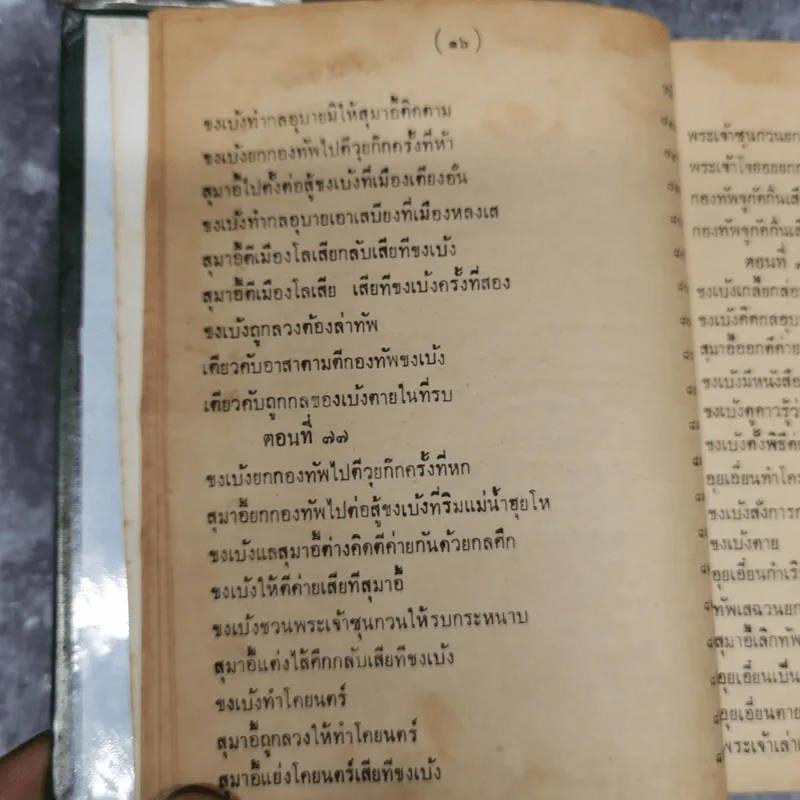 (๑๖)
ขงเบ้งทำกลอุบายมิให้สุมาอี้ติดตาม
ขงเบ้งยกกองทัพไปตีวุยก๊กครั้งที่ห้า
สุมาอี้ไปตั้งต่อสู้ขงเบ้งที่เมืองเตียงอั๋น
ขงเบ้งทำกลอุบายเอาเสบียงที่เมืองหลงเส
สุมาอี้ตีเมืองโลเสียกลับเสียทีขงเบ้ง
สุมาอี้ตีเมืองโลเสีย เสียทีขงเบ้งครั้งที่สอง
ขงเบ้งถูกลวงต้องล่าทัพ
เตียวคับอาสาตามตีกองทัพขงเบ้ง
เตียวคับถูกกลของเบ้งตายในที่รบ
ตอนที่ ๗๗
ขงเบ้งยกกองทัพไปตีวุยก๊กครั้งที่หก
สุมาอี้ยกกองทัพไปต่อสู้ขงเบ้งที่ริมแม่น้ำฮุยโห
ขงเบ้งแลสุมาอี้ต่างคิดตีค่ายกันด้วยกลศึก
ขงเบ้งให้ตีค่ายเสียทีสุมาอี้
ขงเบ้งชวนพระเจ้าซุนกวนให้รบกระหนาบ
สุมาอี้แต่งไส้ศึกกลับเสียทีขงเบ้ง
ขงเบ้งทำโคยนตร์
สุมาอี้ถูกลวงให้ทำโคยนตร์
สุมาอี้แย่งโคยนตร์เสียทีขงเบ้ง
พระเจ้าซุนกวนยก
พระเจ้าโจยอยยกก
กองทัพจูกัดกิ๋นเสี
กองทัพจูกัดกิ๋นเสี
ตอนที่
ขงเบ้งเกลี้ยกล่อม
ขงเบ้งคิดกลอุบา
สุมาอี้ออกตีค่าย
ขงเบ้งมีหนังสือ
ขงเบ้งดูดาวรู้ว่
ขงเบ้งตั้งพิธีต่
อุยเอี๋ยนทำโค
ขงเบ้งสั่งการก
ขงเบ้งตาย
อุยเอี๋ยนกำเริ
ทัพเสฉวนยก
สุมาอี้เลิกทัพ
อุยเอี๋ยนเป็น
อุยเอี๋ยนตาย
พระเจ้าเล่าเ